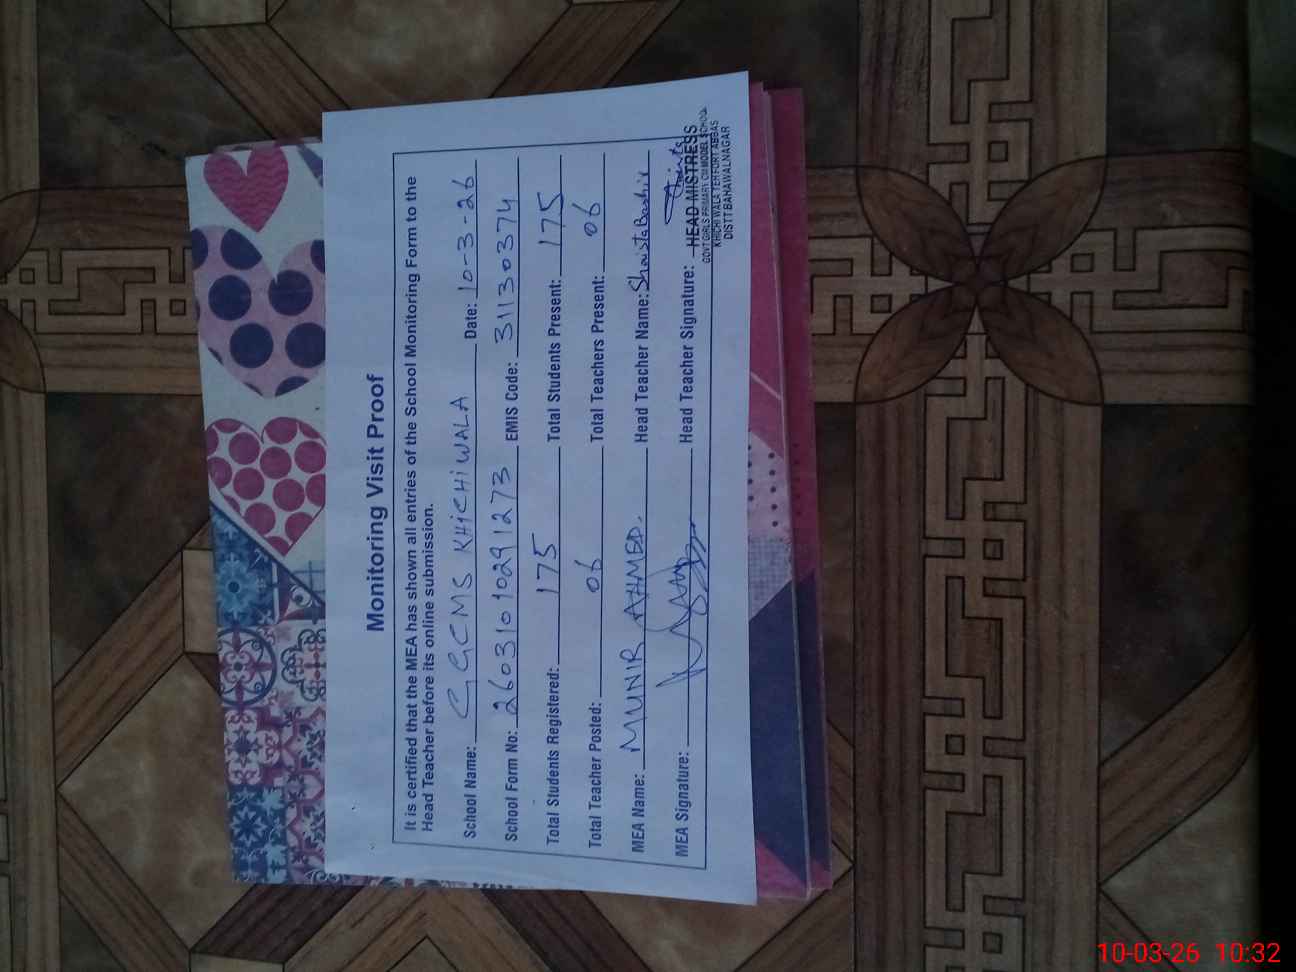 Monitoring Visit Proof
It is certified that the MEA has shown all entries of the School Monitoring Form to the
Head Teacher before its online submission.
School Name: GGCMS KHICHIWALA Date: 10-3-26
School Form No: 26031010291273 EMIS Code: 31130374
Total Students Registered: 175 Total Students Present: 175
Total Teacher Posted: 06 Total Teachers Present: 06
MEA Name: MUNIR AHMED. Head Teacher Name: Shaista Bashir
MEA Signature: Head Teacher Signature:
HEAD MISTRESS
GOVT GIRLS PRIMARY CM MODEL SCHOOL
KHICHI WALA TEH FORT ABBAS
DISTT BAHAWALNAGAR
10-03-26 10:32